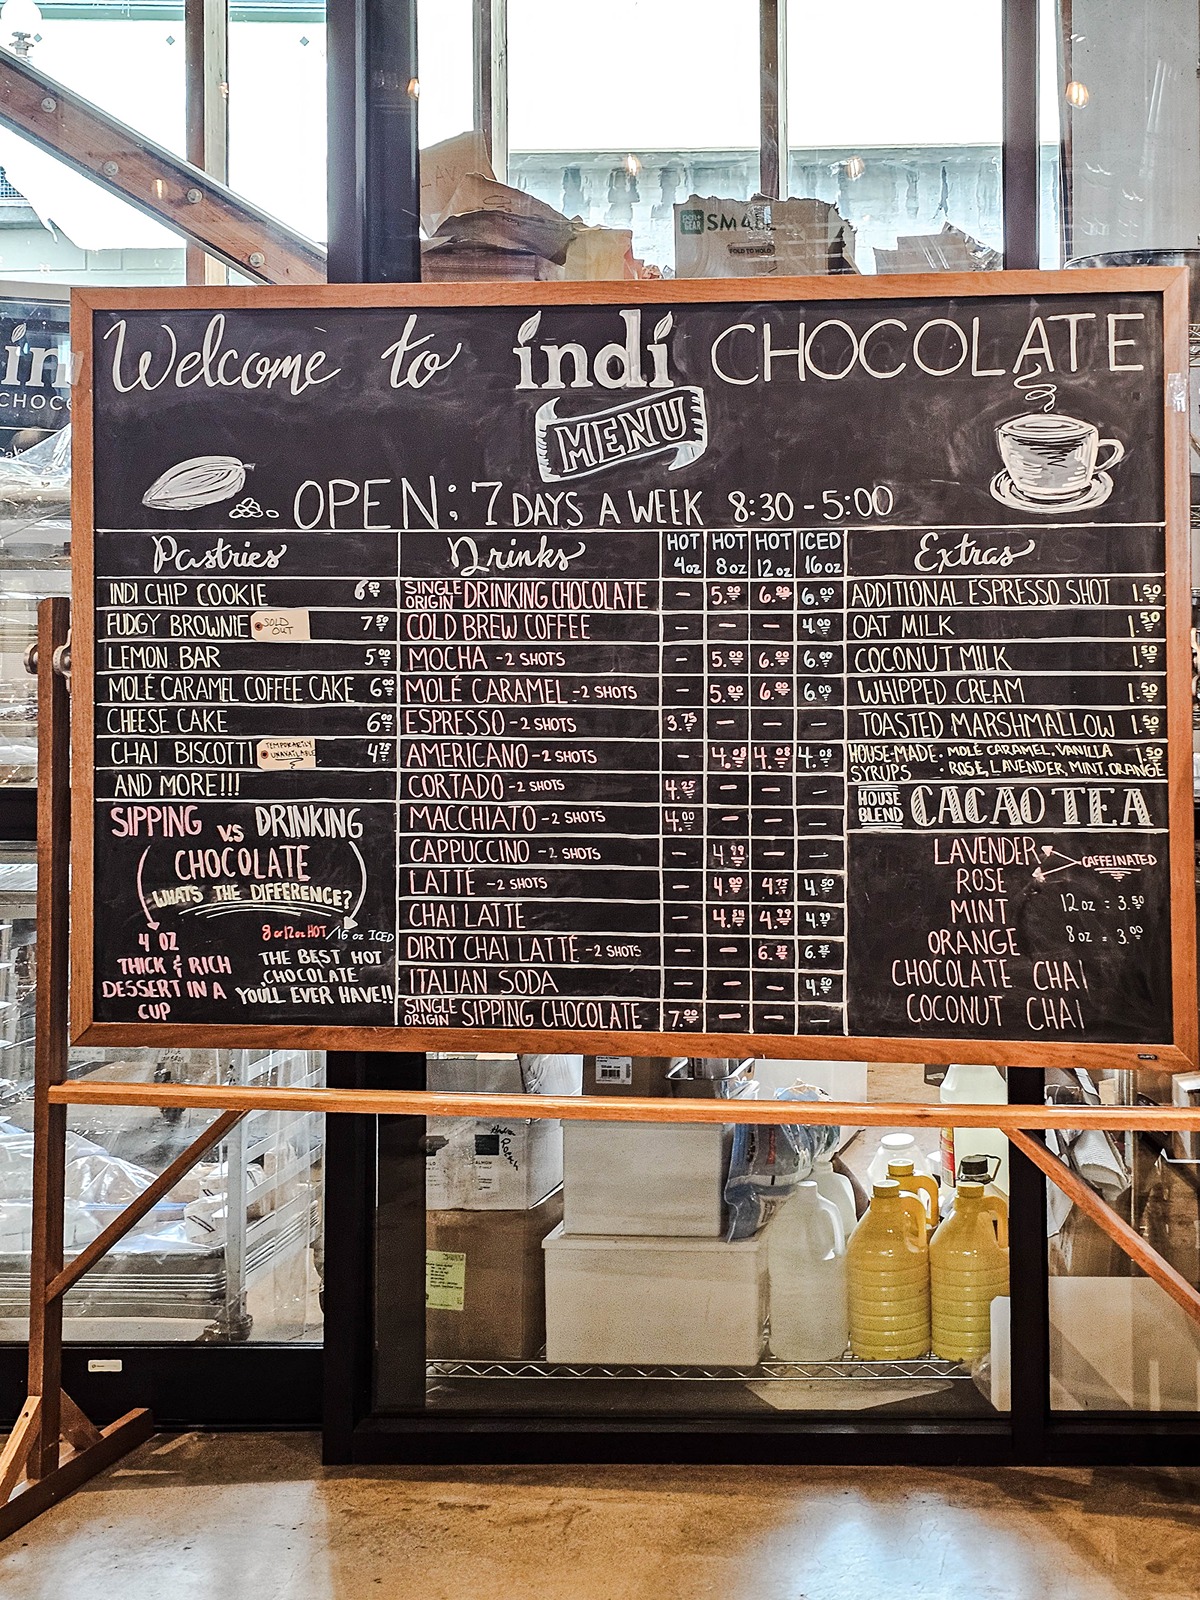 Welcome to indi CHOCOLATE
MENU
OPEN: 7 DAYS A WEEK 8:30 - 5:00
Pastries
INDI CHIP COOKIE 6.50
FUDGY BROWNIE SOLD OUT 7.50
LEMON BAR 5.00
MOLÉ CARAMEL COFFEE CAKE 6.00
CHEESE CAKE 6.00
CHAI BISCOTTI TEMPORARILY UNAVAILABLE 4.75
AND MORE!!!
SIPPING VS DRINKING
CHOCOLATE
WHATS THE DIFFERENCE?
4 OZ
THICK & RICH
DESSERT IN A
CUP
8 or 12 oz HOT/16 oz ICED
THE BEST HOT
CHOCOLATE
YOU'LL EVER HAVE!!
Drinks HOT 4oz HOT 8oz HOT 12oz ICED 16oz
SINGLE ORIGIN DRINKING CHOCOLATE - 5.00 6.00 6.00
COLD BREW COFFEE - - - 4.00
MOCHA - 2 SHOTS - 5.00 6.00 6.00
MOLÉ CARAMEL - 2 SHOTS - 5.00 6.00 6.00
ESPRESSO - 2 SHOTS 3.75 - - -
AMERICANO - 2 SHOTS - 4.08 4.08 4.08
CORTADO - 2 SHOTS 4.25 - - -
MACCHIATO - 2 SHOTS 4.00 - - -
CAPPUCCINO - 2 SHOTS - 4.99 - -
LATTÉ - 2 SHOTS - 4.00 4.75 4.50
CHAI LATTE - 4.54 4.99 4.99
DIRTY CHAI LATTÉ - 2 SHOTS - - 6.35 6.35
ITALIAN SODA - - - 4.50
SINGLE ORIGIN SIPPING CHOCOLATE 7.00 - - -
Extras
ADDITIONAL ESPRESSO SHOT 1.50
OAT MILK 1.50
COCONUT MILK 1.50
WHIPPED CREAM 1.50
TOASTED MARSHMALLOW 1.50
HOUSE-MADE SYRUPS • MOLÉ CARAMEL, VANILLA 1.50
• ROSE, LAVENDER, MINT, ORANGE
HOUSE BLEND CACAO TEA
LAVENDER CAFFEINATED
ROSE
MINT 12oz = 3.50
ORANGE 8oz = 3.00
CHOCOLATE CHAI
COCONUT CHAI